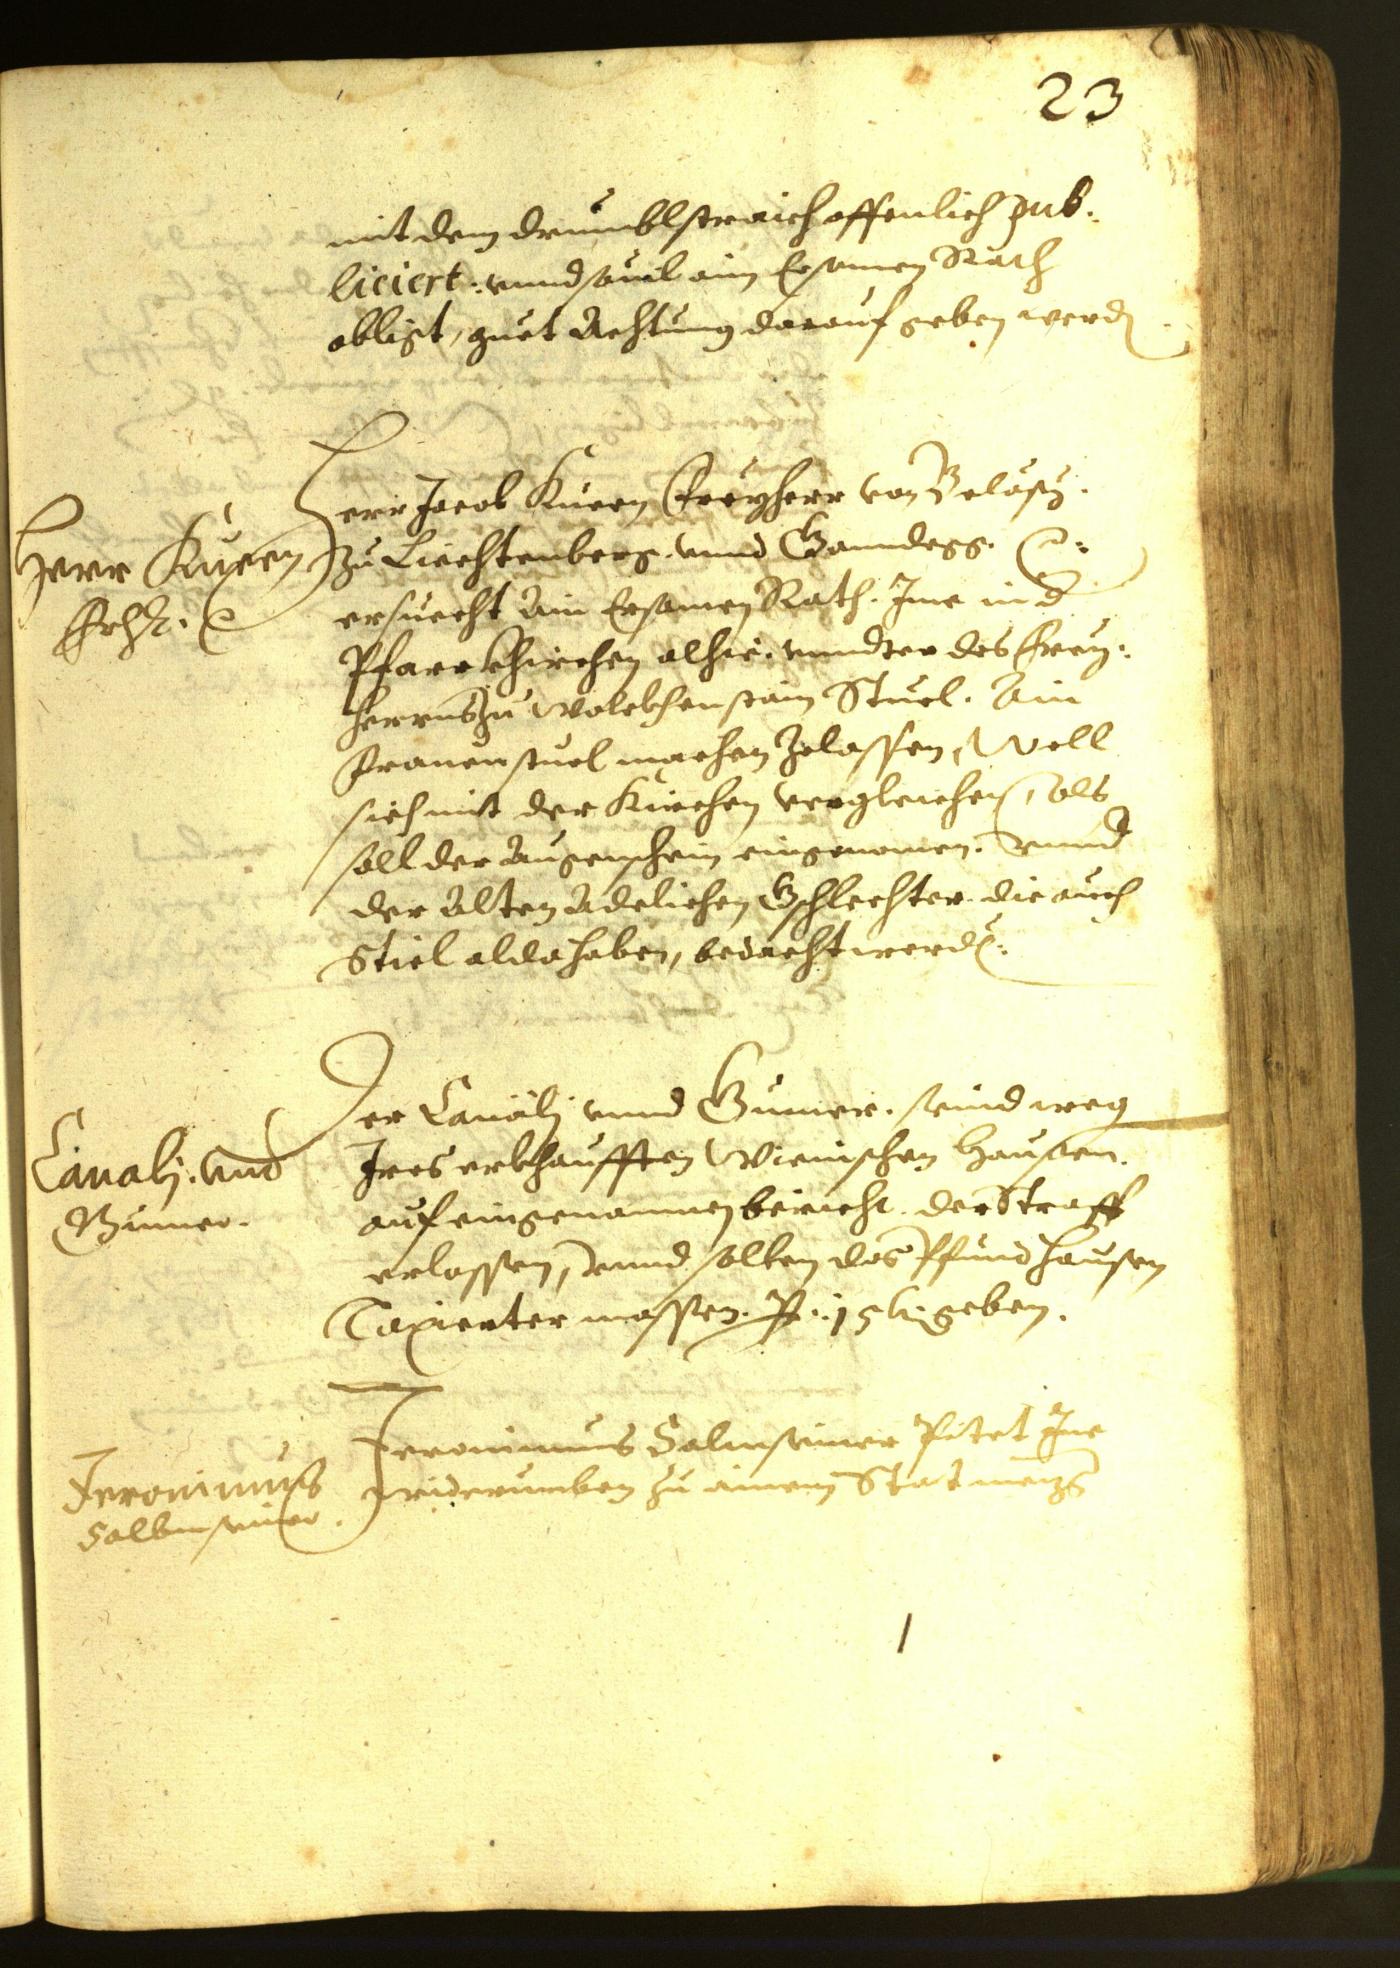 23
mit dem drumblstraich offenlich pub:
liciert: unnd souil aim Ersamen Rath
obligt, guet Achtung darauf geben werdn
Herr Kuen
Frhr. 
Herr Jacob Kuen Freyherr von Belasy.
zu Liechtenberg. unnd Ganndegg. 
ersuecht Ain Ersamen Rath. Ime in d
Pfarrkhirchen alhie. unndter des Frey:
herrns zu Wolckhenstain Stuel. Ain
Frauenstuel machen zelassen, Well
sich mit der Kirchen vergleichen, als
soll der Augenschein eingenomen. unnd
der Alten Adelichen Gschlechter. die auch
Stiel alda haben, bedacht werdn.
Canali. und
Gumer.
Der Canali unnd Gumer. seind weg
Ires erkhaufften Wienischen Hausen.
auf eingenomnen bericht. der Straff
erlassen, unnd sollen das Pfundhausen
Taxierter massen. P: 15 kr. geben.
Jeronimus
Salmseiner.
Jeronimus Salmseiner Pitet Ine
widerumben zu ainem Stat mezg